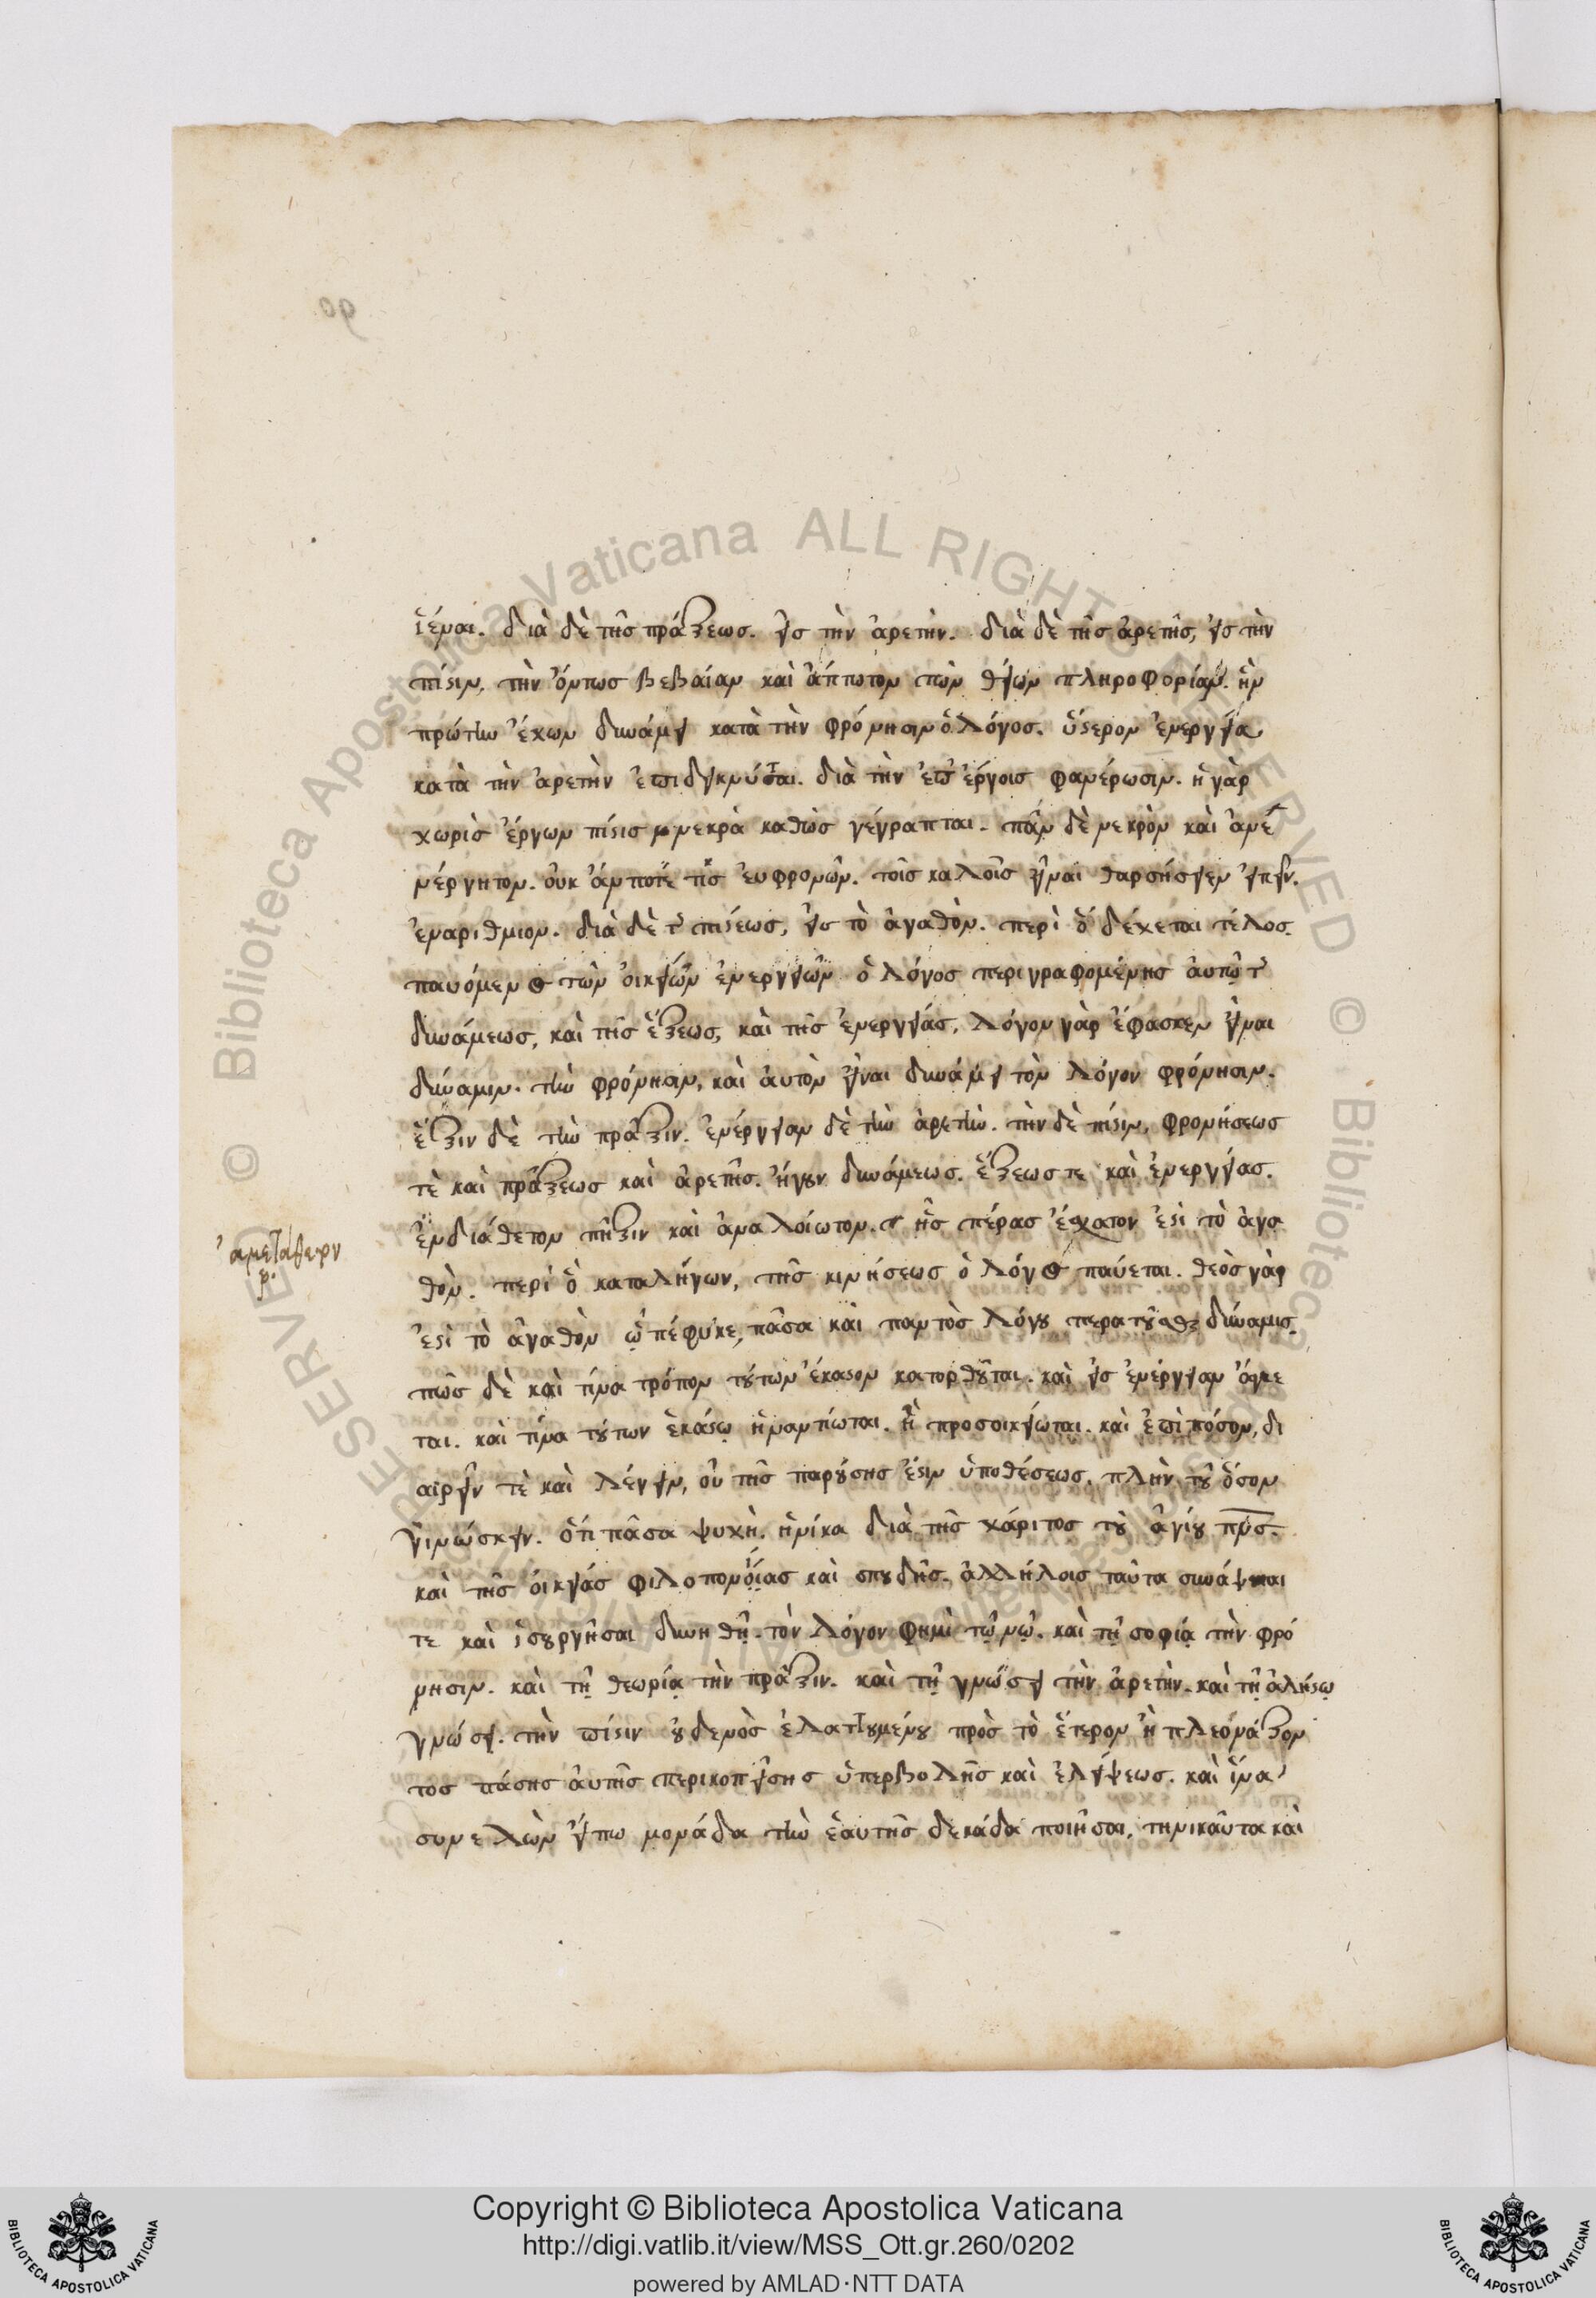 ἰέναι. διὰ δὲ τῆς πράξεως. εἰς τὴν ἀρετὴν. διὰ δὲ τῆς ἀρετῆς, εἰς τὴν
πίστιν, τὴν ὄντως βεβαίαν καὶ ἄπτωτον τῶν θείων πληροφορίαν. ἣν
πρώτην ἔχων δυνάμει κατὰ τὴν φρόνησιν ὁ λόγος. ὕστερον ἐνεργείᾳ
κατὰ τὴν ἀρετὴν ἐπιδείκνυται. διὰ τὴν ἐπ' ἔργοις φανέρωσιν. ἡ γὰρ
χωρὶς ἔργων πίστις νεκρὰ καθὼς γέγραπται. πᾶν δὲ νεκρὸν καὶ ἀνε
νέργητον. οὐκ ἄν ποτέ τις εὐφρονῶν. τοῖς καλοῖς εἶναι θαρσήσειεν εἰπεῖν.
ἐναρίθμιον. διὰ δὲ τ πίστεως, εἰς τὸ ἀγαθὸν. περὶ ὃ δέχεται τέλος.
παυόμενος τῶν οἰκείων ἐνεργειῶν ὁ λόγος περιγραφομένης αὐτῷ τ
δυνάμεως, καὶ τῆς ἕξεως, καὶ τῆς ἐνεργείας. λόγον γὰρ ἔφασκεν εἶναι
δύναμιν. τὴν φρόνησιν, καὶ αὐτὸν εἶναι δυνάμει τὸν λόγον φρόνησιν.
ἕξιν δὲ τὴν πρᾶξιν. ἐνέργειαν δὲ τὴν ἀρετὴν. τὴν δὲ πίστιν, φρονήσεως
τὲ καὶ πράξεως καὶ ἀρετῆς. ἤγουν δυνάμεως. ἕξεως τε καὶ ἐνεργείας.
ἐνδιάθετον πῆξιν καὶ ἀναλοίωτον. ἧς πέρας ἔσχατον ἐστὶ τὸ ἀγα
θὸν. περὶ ὃ καταλήγων, τῆς κινήσεως ὁ λόγος παύεται. θεὸς γὰρ
ἐστὶ τὸ ἀγαθὸν ᾧ πέφυκε, πᾶσα καὶ παντὸς λόγου περατοῦσθαι δύναμις.
πῶς δὲ καὶ τίνα τρόπον τούτων ἕκαστον κατορθοῦται. καὶ εἰς ἐνέργειαν ἄγε
ται. καὶ τίνα τούτων ἑκάστῳ ἠναντίωται. ἢ προσοικείωται. καὶ ἐπὶ πόσον, δι
αιρεῖν τὲ καὶ λέγειν, οὐ τῆς παρούσης ἐστιν ὑποθέσεως. πλὴν τοῦ ὅσον
γινώσκειν. ὅτι πᾶσα ψυχὴ. ἡνίκα διὰ τῆς χάριτος τοῦ ἁγίου πνς.
καὶ τῆς οἰκείας φιλοπονίας καὶ σπουδῆς. ἀλλήλοις ταῦτα συνάψαι
τε καὶ ἱστουργῆσαι δυνηθῇ. τὸν λόγον φημὶ τῷ νῷ. καὶ τῇ σοφίᾳ τὴν φρό
νησιν. καὶ τῇ θεωρίᾳ τὴν πρᾶξιν. καὶ τῇ γνώσει τὴν ἀρετὴν. καὶ τῇ ἀλήστῳ
γνώσει. τὴν πίστιν οὐδενὸς ἐλαττουμένου πρὸς τὸ ἕτερον ἢ πλεονάζον
τος πάσης αὐτῆς περικοπείσης ὑπερβολῆς καὶ ἐλείψεως. καὶ ἵνα
συνελὼν εἴπω μονάδα τὴν ἑαυτῆς δεκάδα ποιῆσαι, τηνικαῦτα καὶ
Copyright © Biblioteca Apostolica Vaticana
http://digi.vatlib.it/view/MSS_Ott.gr.260/0202
powered by AMLAD·NTT DATA
BIBLIOTECA APOSTOLICA VATICANA
BIBLIOTECA APOSTOLICA VATICANA